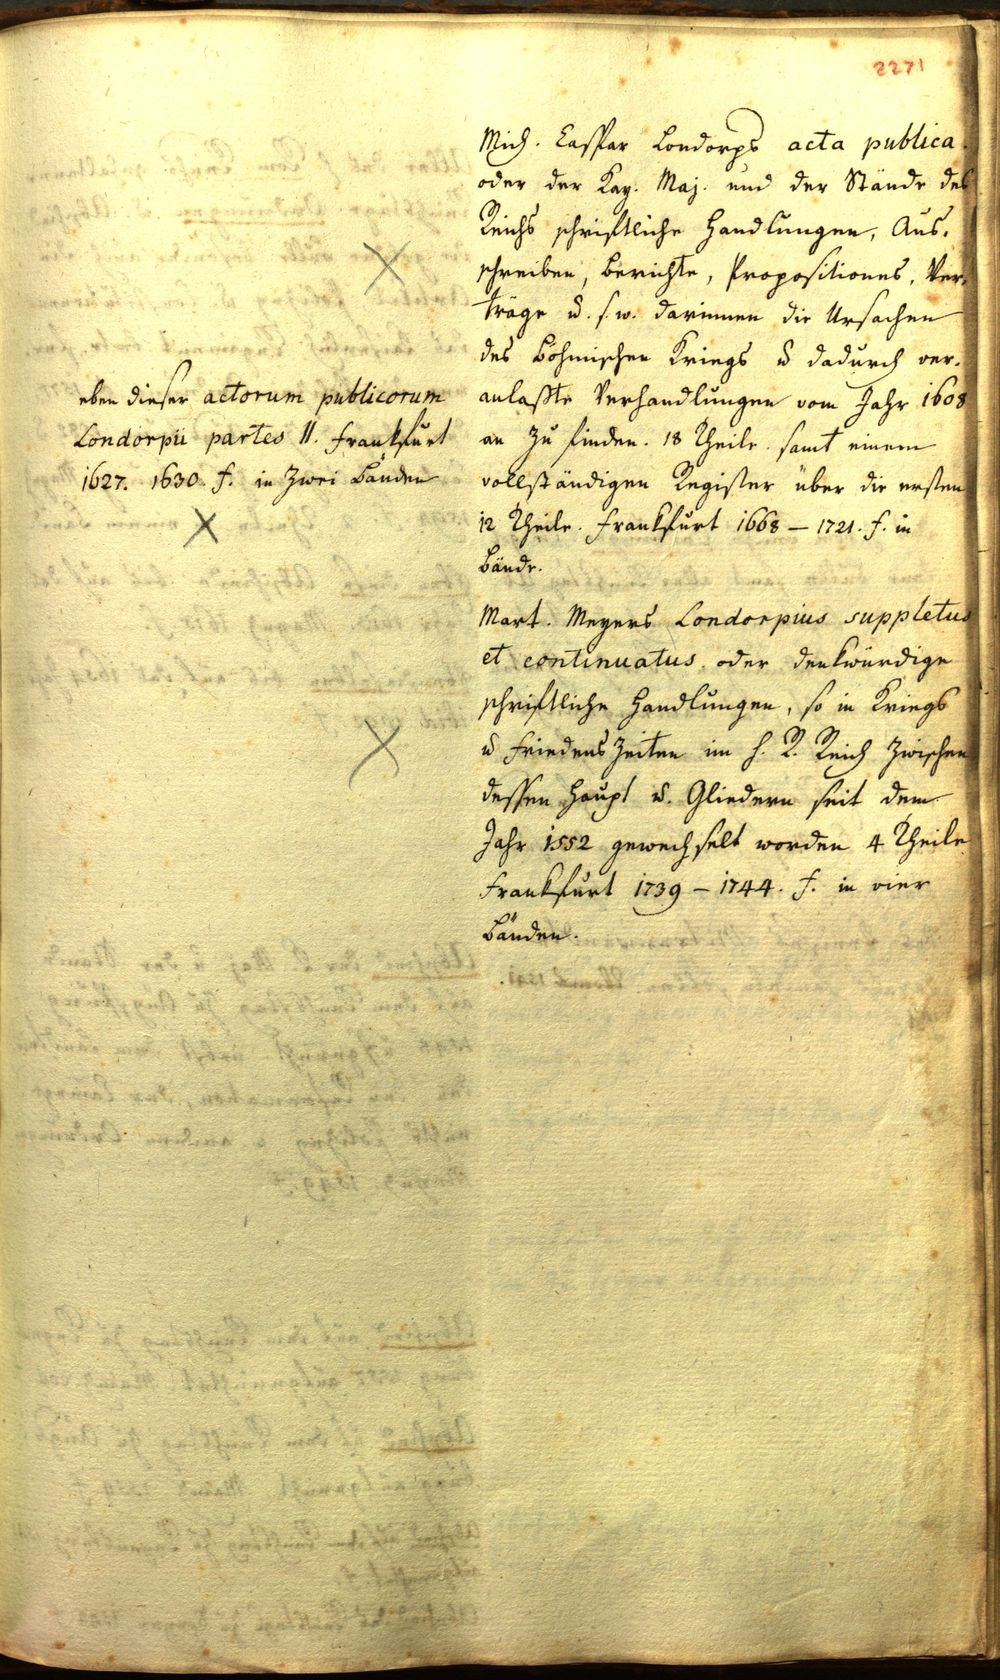 2271
Mich. Caspar Londorps acta publica
oder der Kay. Maj. und der Stände des
Reichs schriftliche Handlungen, Aus-
schreiben, Berichte, Propositiones, Ver-
träge u. s. w. darinnen die Ursachen
des Böhmischen Kriegs u dadurch ver-
anlaßte Verhandlungen vom Jahr 1608
an zu finden. 18 Theile. samt einem
vollständigen Register über die ersten
12 Theile. Frankfurt 1668 – 1721. f. in
Bände.
eben dieser actorum publicorum
Londorpii partes II. Frankfurt
1627. 1630. f. in zwei Bänden
Mart. Meyers Londorpius suppletus
et continuatus oder denkwürdige
schriftliche Handlungen, so in Kriegs
u FriedensZeiten im H. R. Reich zwischen
dessen Haupt u. Gliedern seit dem
Jahr 1552 gewechselt worden 4 Theile
Frankfurt 1739 – 1744. f. in vier
Bänden.